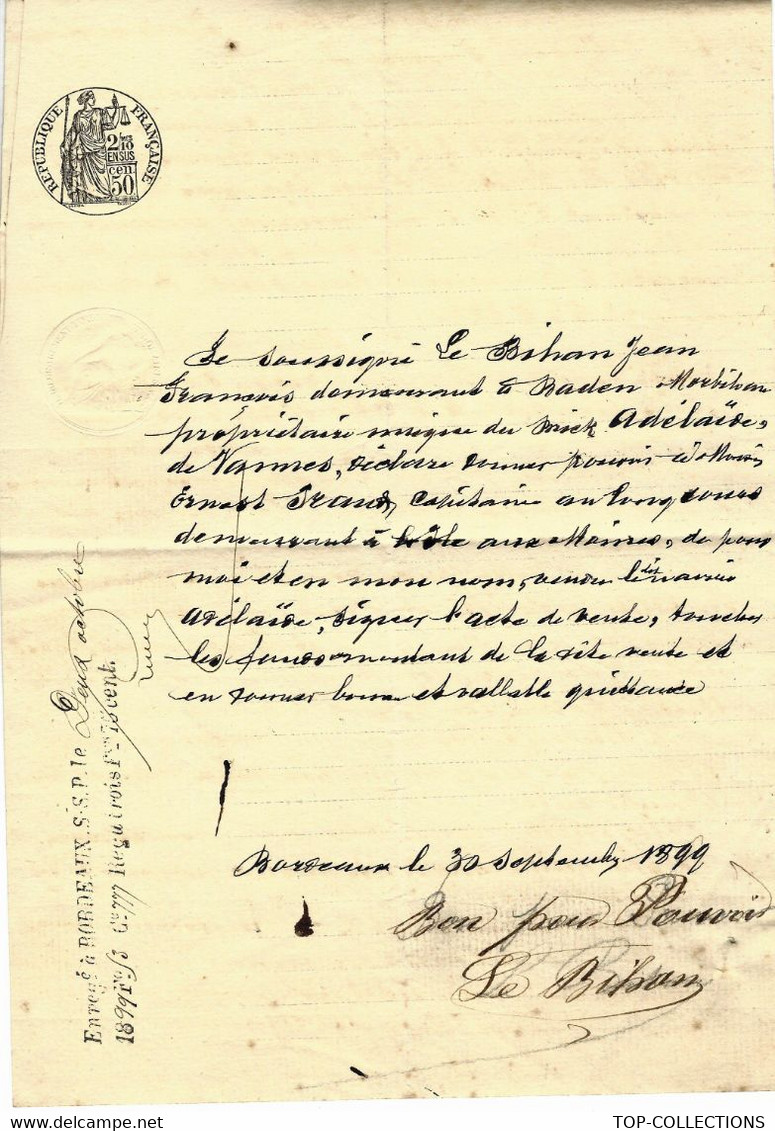 REPUBLIQUE FRANÇAISE
2/10
EN SUS
cen.
50
Je soussigné Le Bihan Jean
François demeurant à Baden Morbihan
propriétaire unique du brick Adélaïde,
de Vannes, déclare donner pouvoir à
Ernest Grand, Capitaine au long cours
demeurant à aux Moines, de pour
moi et en mon nom, vendre le dit navire
Adélaïde, signer l'acte de vente, toucher
les fonds montant de la dite vente et
en donner bonne et vallable quittance
Bordeaux le 30 septembre 1899
Bon pour Pouvoir
Le Bihan
Enregé à BORDEAUX. S.S.P. le Deux octobre
1899 Reçu trois Frcs 75 cent.
TOP-COLLECTIONS